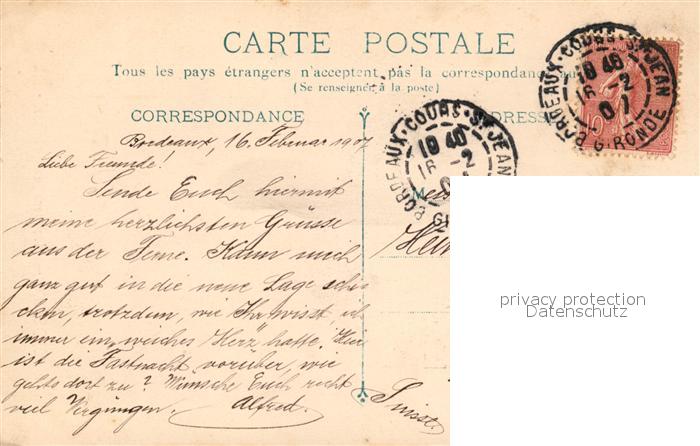 CARTE POSTALE
Tous les pays étrangers n'acceptent pas la correspondance au
(Se renseigner à la poste)
CORRESPONDANCE
ADRESSE
BORDEAUX · COURS · ST JEAN
18 40
16 - 2
07
GIRONDE
10
BORDEAUX · COURS · ST JEAN
18 40
16 - 2
Bordeaux, 16. Februar 1907
Liebe Freunde!
Sende Euch hiermit
meine herzlichsten Grüsse
aus der Ferne. Kann mich
ganz gut in die neue Lage schi-
cken, trotzdem, wie Ihr wisst, ich
immer ein weiches Herz hatte. Hier
ist die Fastnacht vorüber, wie
gehts dort zu? Wünsche Euch recht
viel Vergnügen. Alfred.
Suisse.
privacy protection
Datenschutz